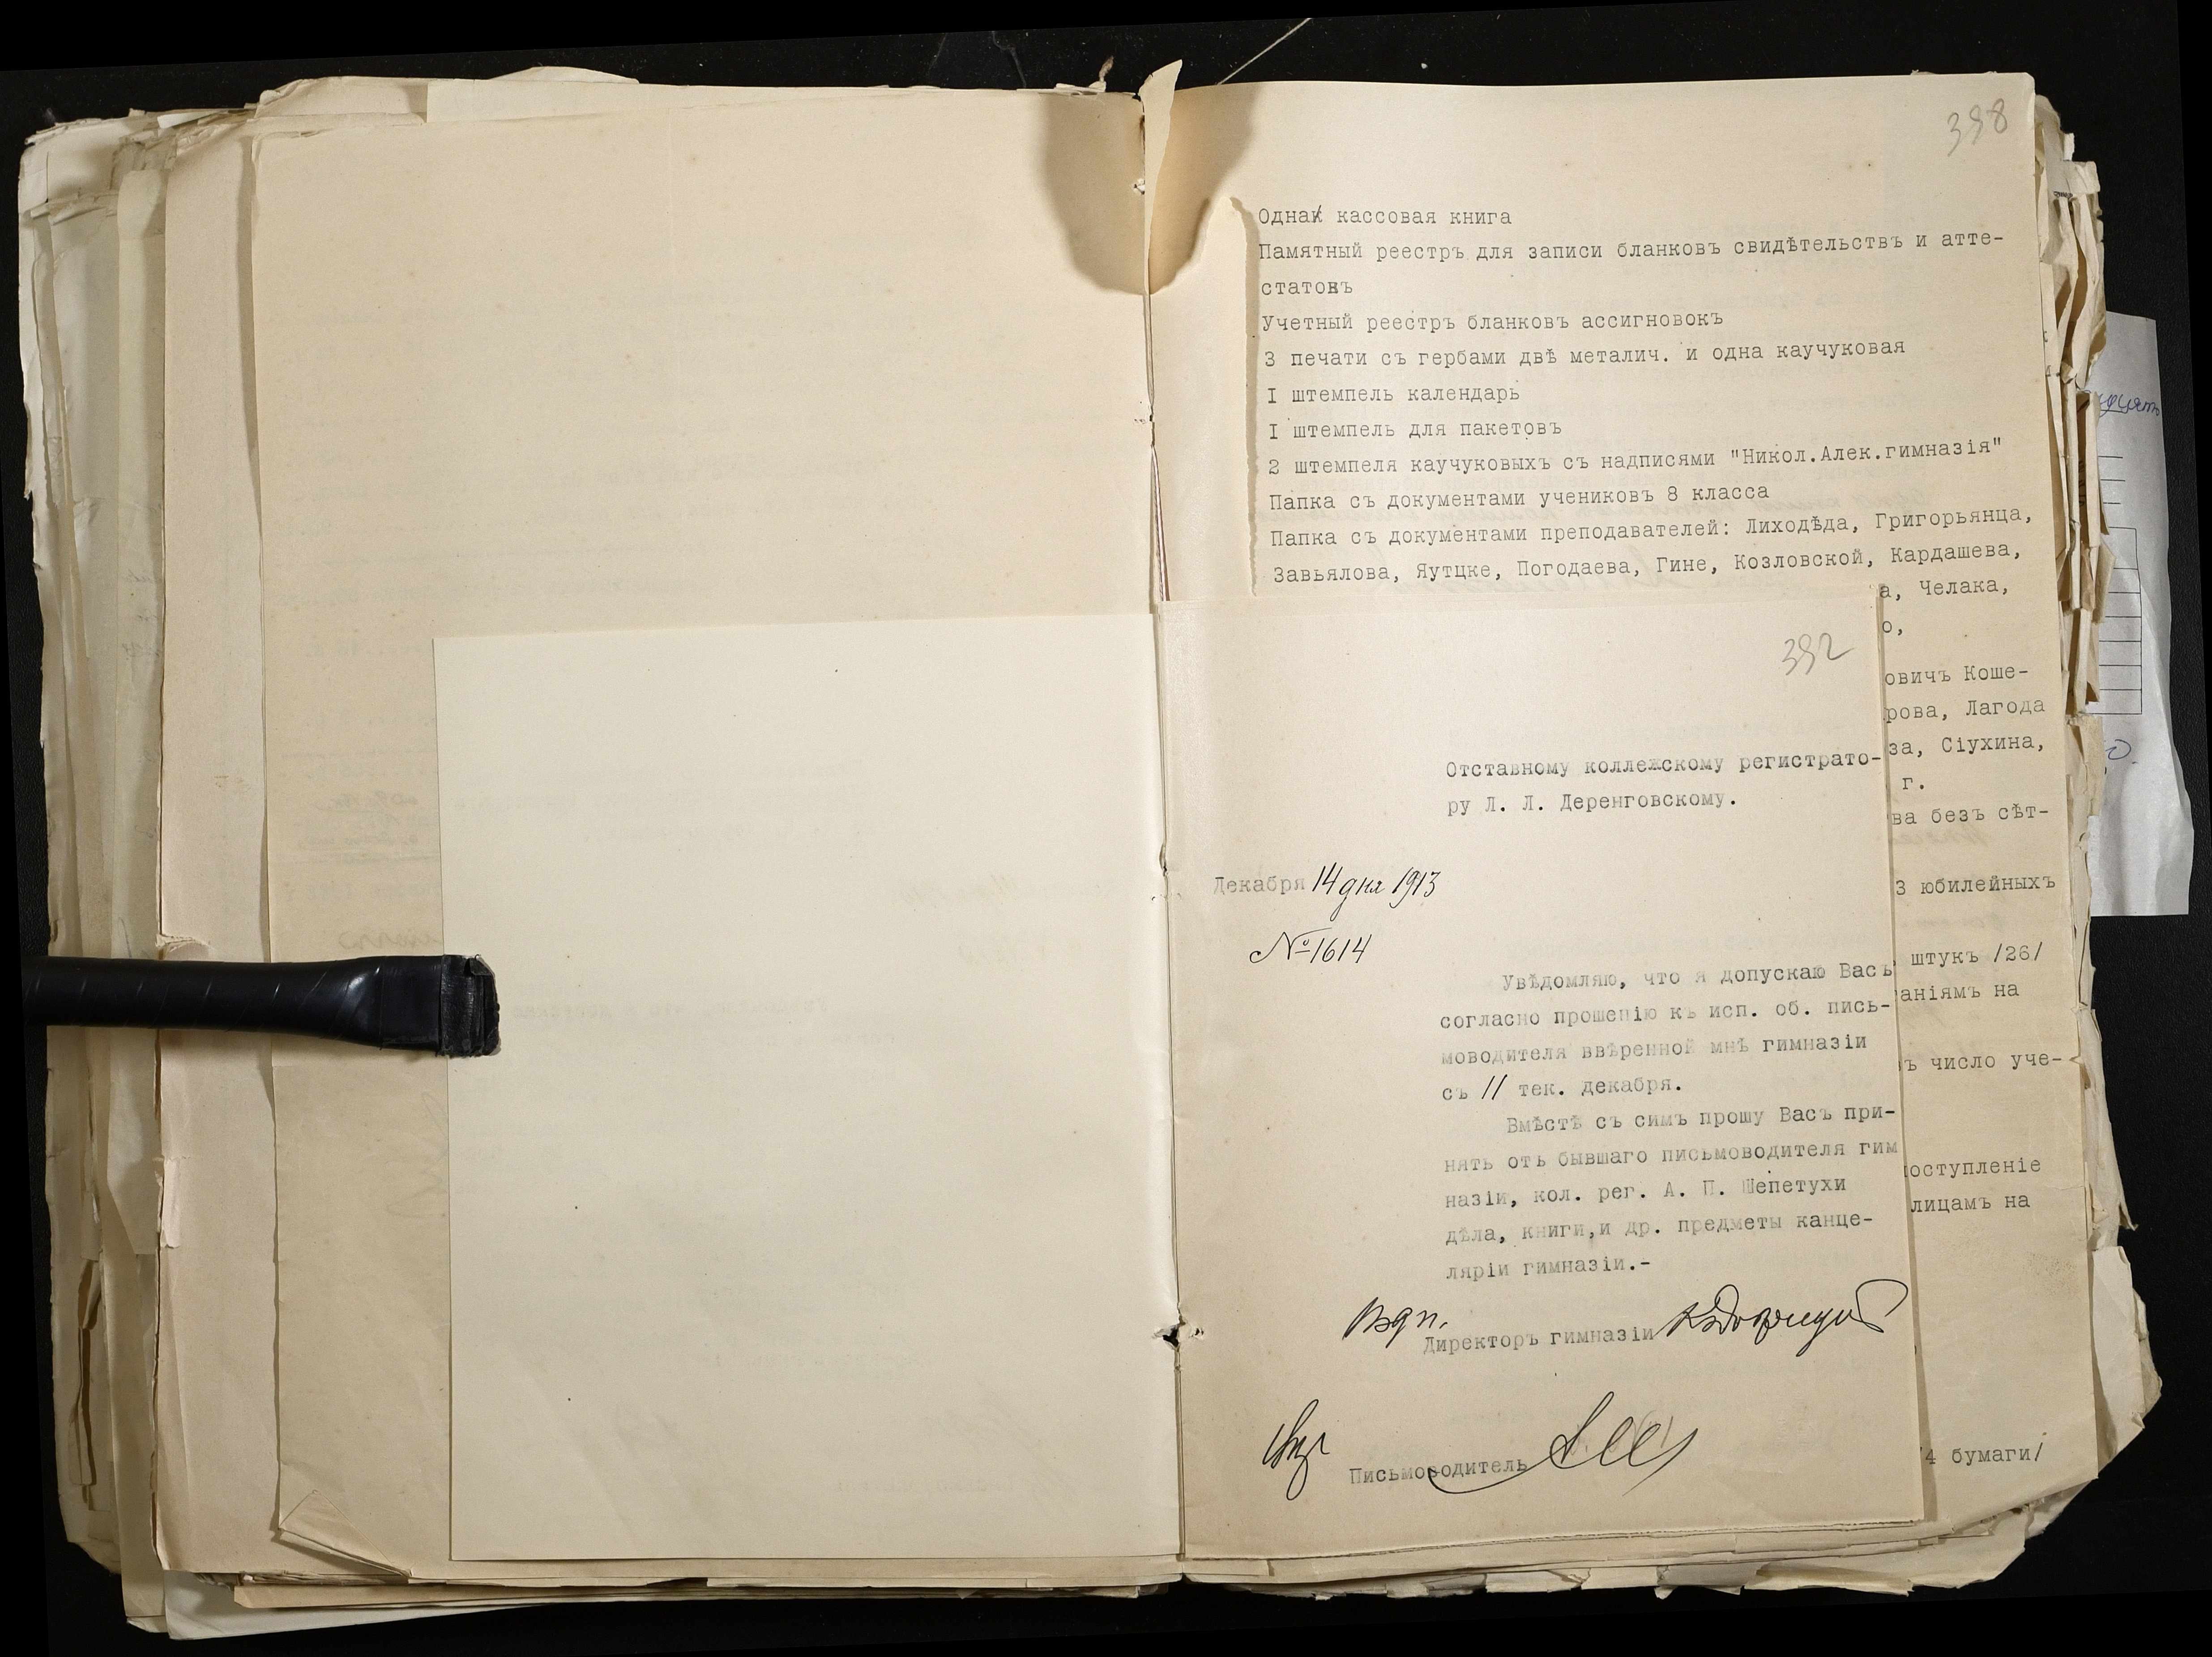 398
Одна кассовая книга
Памятный реестръ для записи бланковъ свидѣтельствъ и атте-
статовъ
Учетный реестръ бланковъ ассигновокъ
3 печати съ гербами двѣ металич. и одна каучуковая
I штемпель календарь
I штемпель для пакетовъ
2 штемпеля каучуковыхъ съ надписями "Никол.Алек.гимназія"
Папка съ документами учениковъ 8 класса
Папка съ документами преподавателей: Лиходѣда, Григорьянца,
Завьялова, Яутцке, Погодаева, Гине, Козловской, Кардашева,
а, Челака,
о,
овичъ Коше-
рова, Лагода
за, Сіухина,
г.
ва безъ сѣт-
3 юбилейныхъ
штукъ /26/
аніямъ на
ъ число уче-
оступленіе
лицамъ на
4 бумаги/
392
Отставному коллежскому регистрато-
ру Л. Л. Деренговскому.
Декабря 14 дня 1913
№ 1614
Увѣдомляю, что я допускаю Васъ
согласно прошенію къ исп. об. пись-
моводителя ввѣренной мнѣ гимназіи
съ 11 тек. декабря.
Вмѣстѣ съ симъ прошу Васъ при-
нять отъ бывшаго письмоводителя гим
назіи, кол. рег. А. П. Шепетухи
дѣла, книги,и др. предметы канце-
ляріи гимназіи.-
Директоръ гимназіи
Письмоводитель